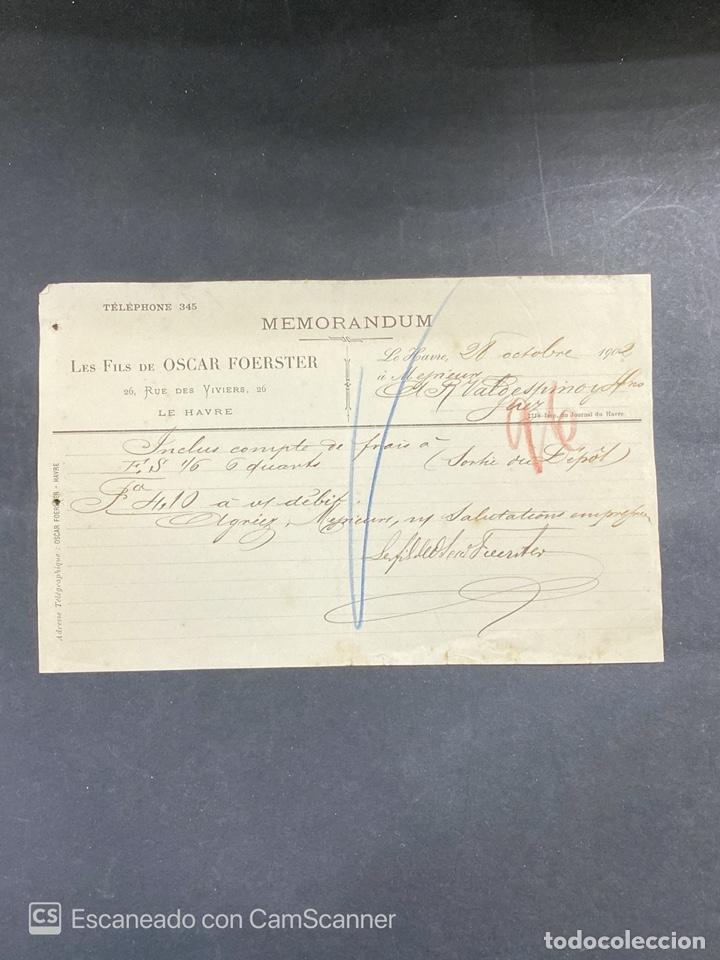 TÉLÉPHONE 345
MEMORANDUM
LES FILS DE OSCAR FOERSTER
26, RUE DES VIVIERS, 26
LE HAVRE
Le Havre, 28 octobre 1902
à Messieurs
A R Valdespino y Hno
Jerez
1718 Imp. du Journal du Havre
96
Inclus compte de frais à
F.S 1/6 6 quarts (Sortie du Dépôt)
4,10 à v/ débit.
Agréez, Messieurs, n/ Salutations empressées
Les fils de Oscar Foerster
Adresse Télégraphique : OSCAR FOERSTER - HAVRE
CS Escaneado con CamScanner
todocoleccion